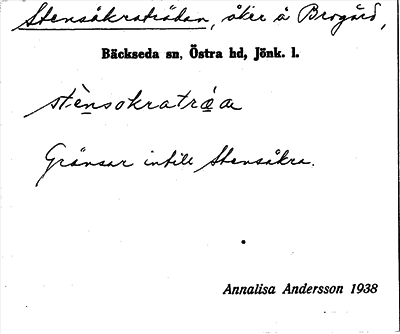 Stensåkraträdan, åker å Brogård,
Bäckseda sn, Östra hd, Jönk. l.
stènsokratráa
Gränsar intill Stensåkra.
Annalisa Andersson 1938